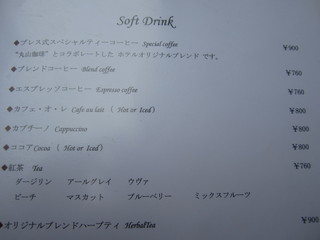 Soft Drink
◆プレス式スペシャルティーコーヒー Special coffee ¥900
"丸山珈琲"とコラボレートした ホテルオリジナルブレンド です。
◆ブレンドコーヒー Blend coffee ¥760
◆エスプレッソコーヒー Espresso coffee ¥760
◆カフェ・オ・レ Café au lait ( Hot or Iced) ¥800
◆カプチーノ Cappuccino ¥800
◆ココア Cocoa ( Hot or Iced) ¥800
◆紅茶 Tea ¥760
ダージリン アールグレイ ウヴァ
ピーチ マスカット ブルーベリー ミックスフルーツ
◆オリジナルブレンドハーブティ HerbalTea ¥900